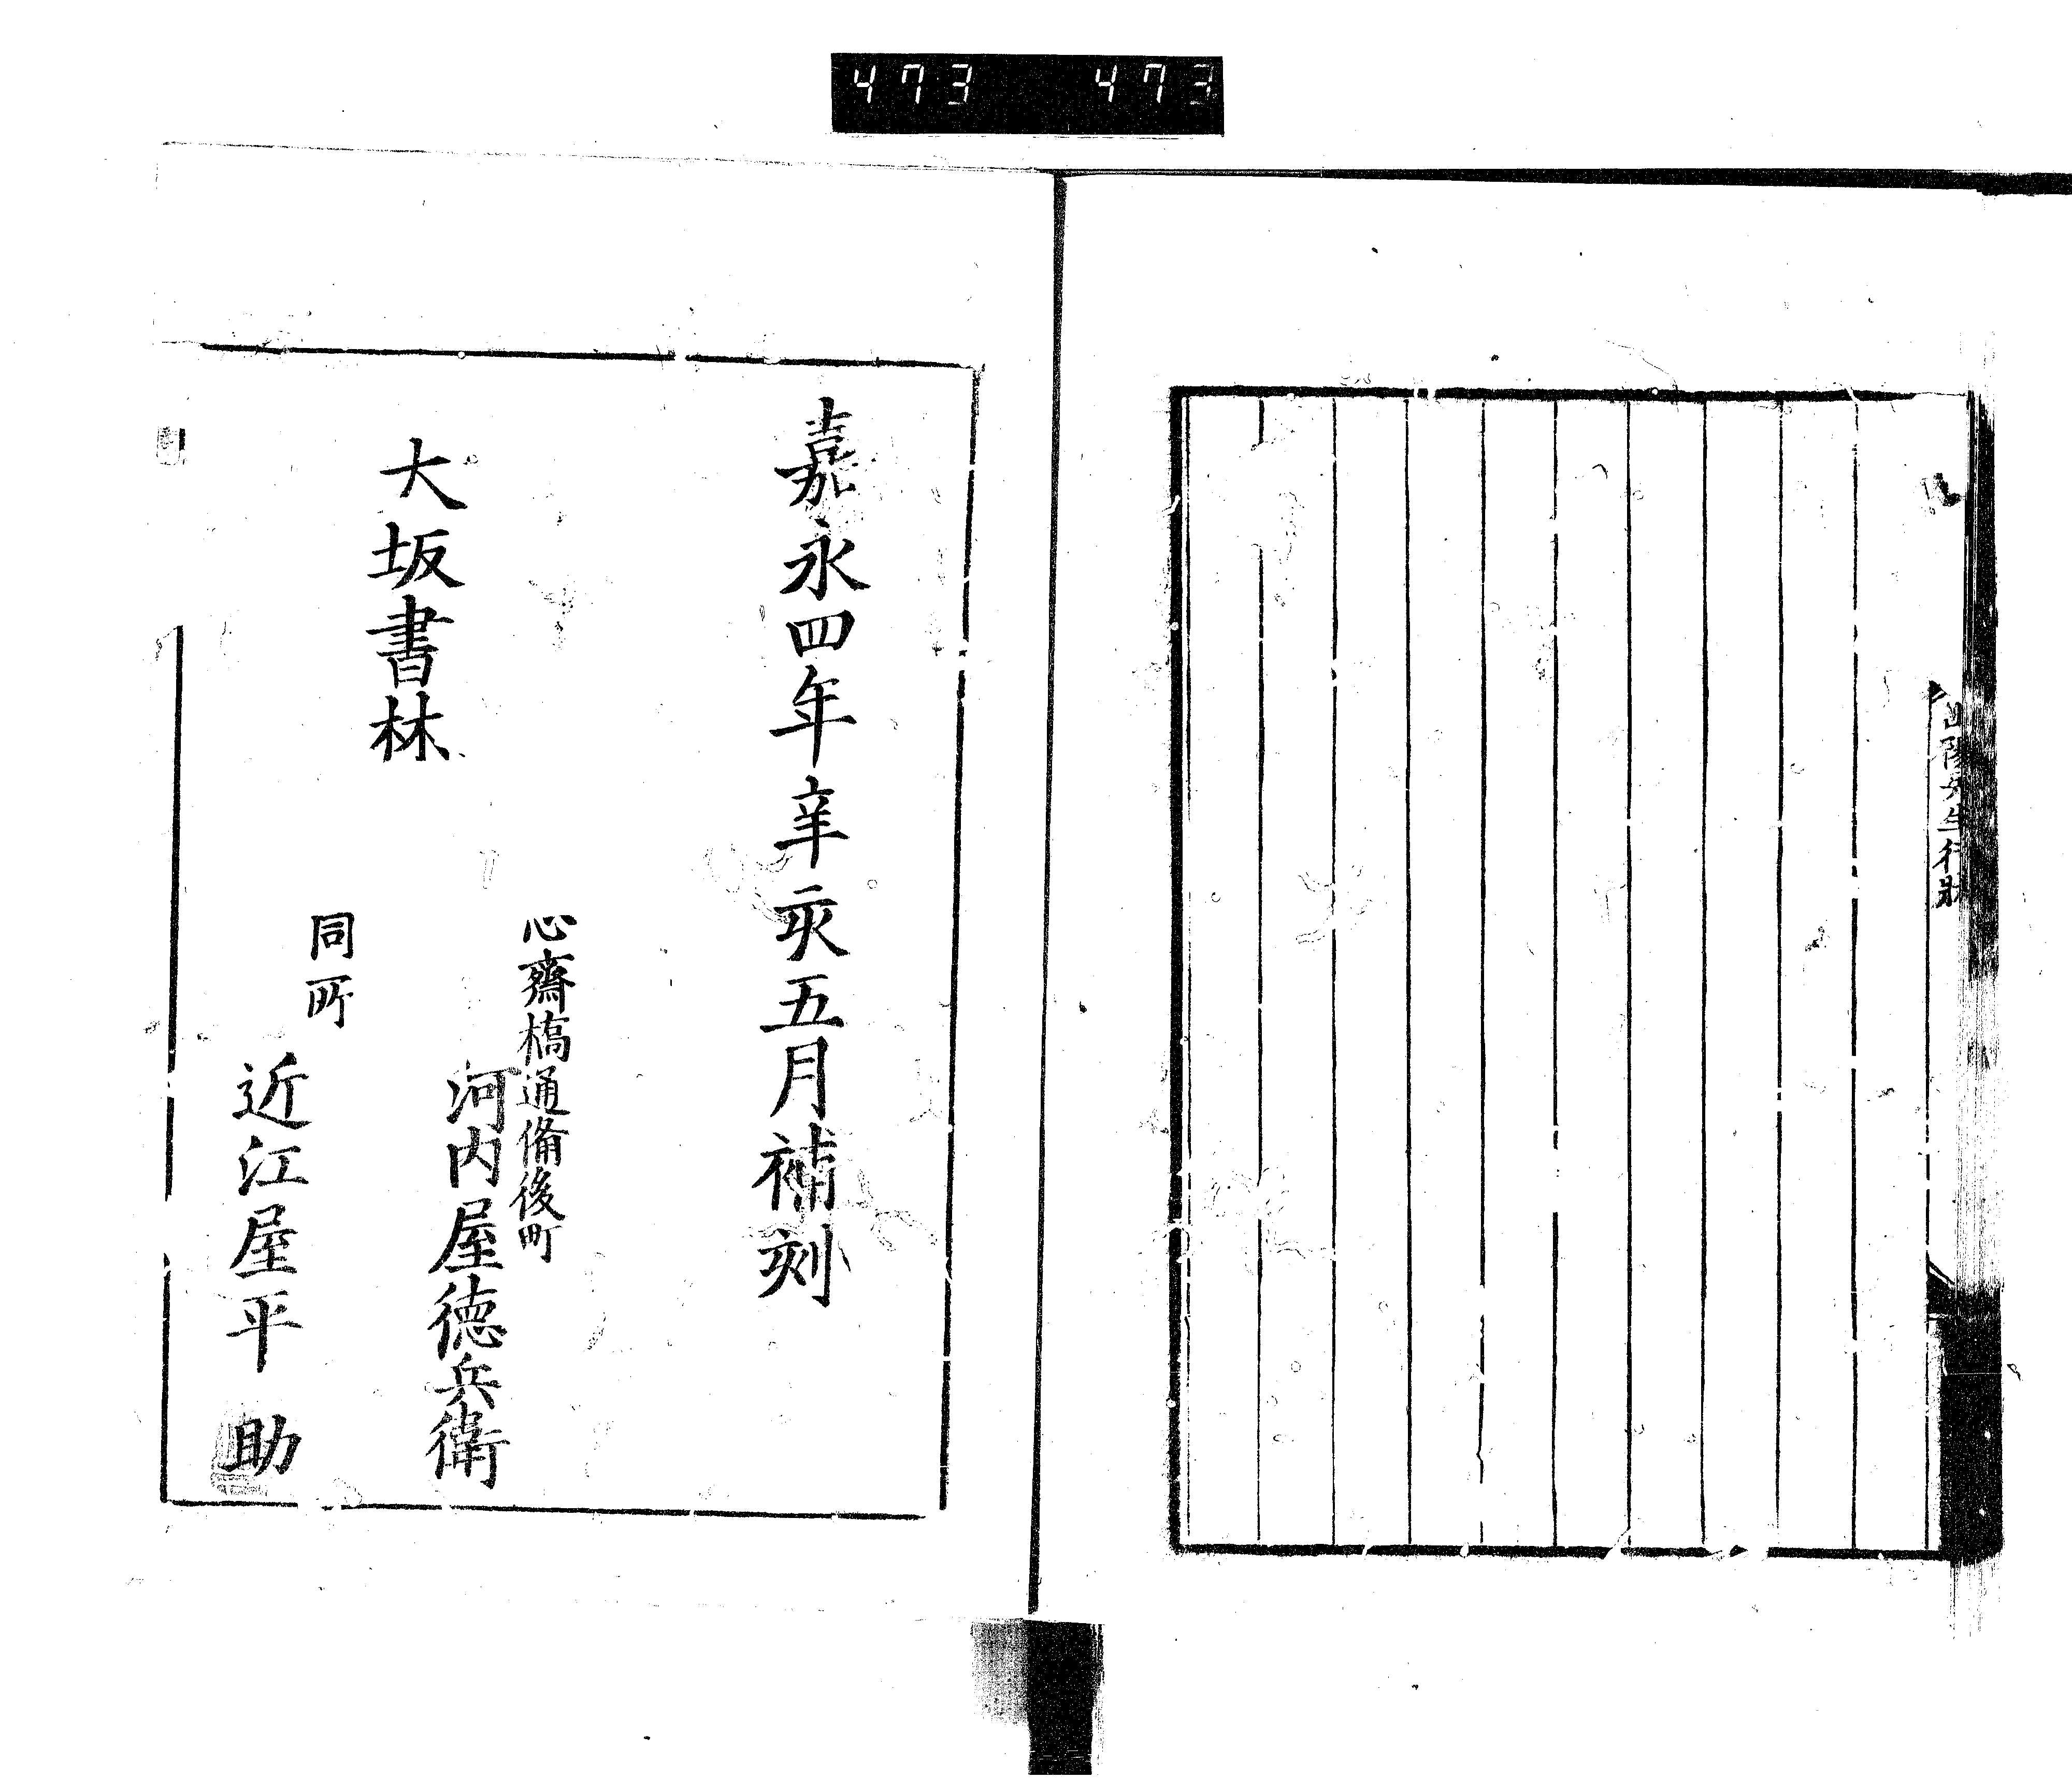 473 473
山陽先生行狀
嘉永四年辛亥五月補刻
大坂書林
心齋橋通備後町
河内屋徳兵衛
同所
近江屋平助